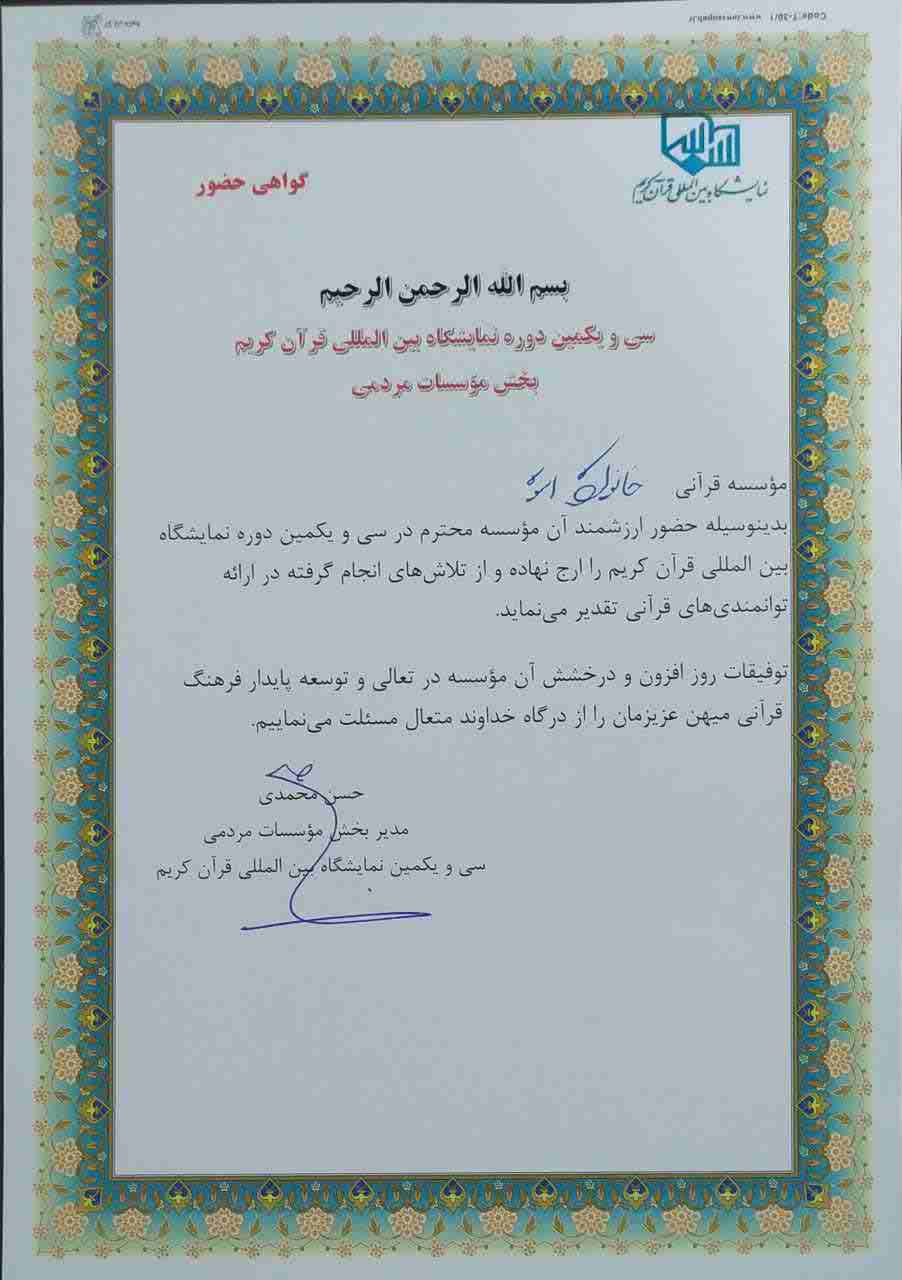 Code:T-30/1
نمایشگاه بین المللی قرآن کریم
گواهی حضور
بسم الله الرحمن الرحیم
سی و یکمین دوره نمایشگاه بین المللی قرآن کریم
بخش مؤسسات مردمی
مؤسسه قرآنی خانواده اسوه
بدینوسیله حضور ارزشمند آن مؤسسه محترم در سی و یکمین دوره نمایشگاه
بین المللی قرآن کریم را ارج نهاده و از تلاش‌های انجام گرفته در ارائه
توانمندی‌های قرآنی تقدیر می‌نماید.
توفیقات روز افزون و درخشش آن مؤسسه در تعالی و توسعه پایدار فرهنگ
قرآنی میهن عزیزمان را از درگاه خداوند متعال مسئلت می‌نماییم.
حسن محمدی
مدیر بخش مؤسسات مردمی
سی و یکمین نمایشگاه بین المللی قرآن کریم